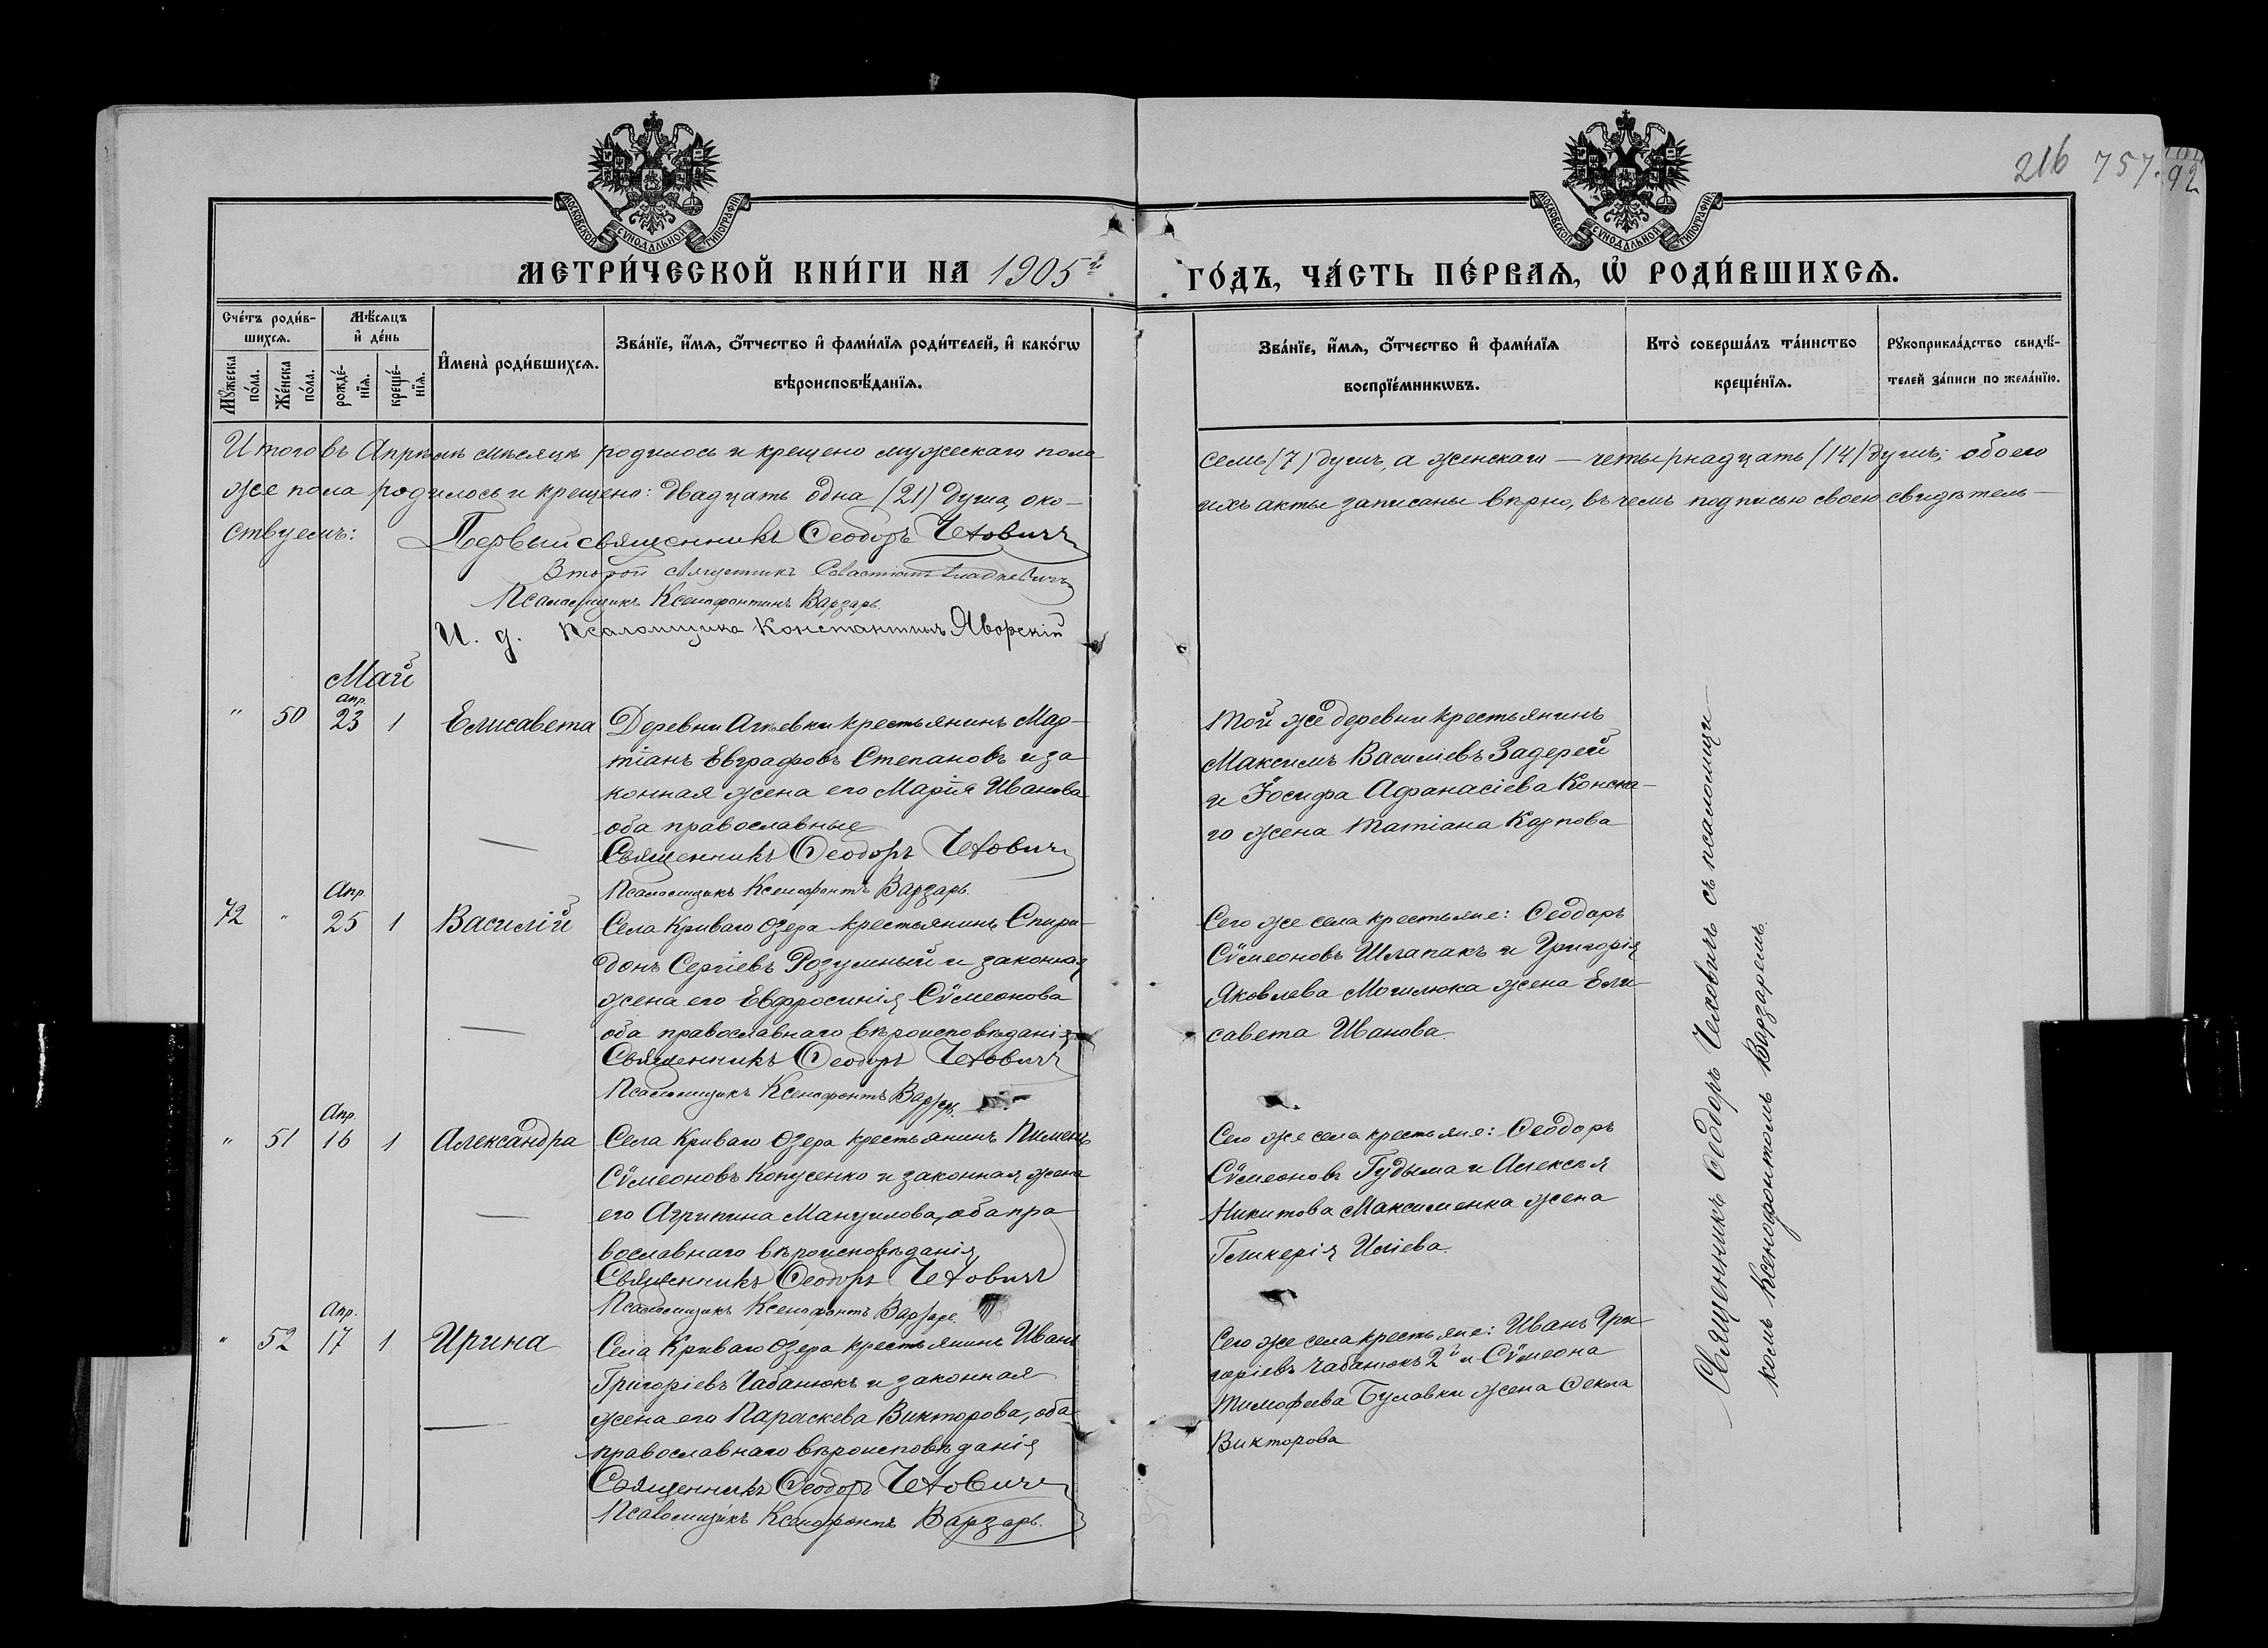 216 757. 92
МОСКОВСКОЙ СѴНОДАЛЬНОЙ ТИПОГРАФІИ
МОСКОВСКОЙ СѴНОДАЛЬНОЙ ТИПОГРАФІИ
МЕТРИ́ЧЕСКОЙ КНИ́ГИ НА 1905й ГО́ДЪ, ЧА́СТЬ ПЕ́РВАѦ, Ѡ҆ РОДИ́ВШИХСѦ.
Сче́тъ роди́в-
шихсѧ.
Мꙋ́жеска по́ла.
Же́нска по́ла.
Мѣ́сѧцъ
и҆ де́нь
рожде́-
нїѧ.
креще́-
нїѧ.
И҆мена̀ роди́вшихсѧ.
Зва́нїе, и҆́мѧ, ѻ҆́тчество и҆ фами́лїѧ роди́телей, и҆ како́гѡ
вѣроисповѣ́данїѧ.
Зва́нїе, и҆́мѧ, ѻ҆́тчество и҆ фами́лїѧ
воспрїе́мникѡвъ.
Кто̀ соверша́лъ та́инство
креще́нїѧ.
Рꙋкоприкла́дство свидѣ́-
телей за́писи по жела́нїю.
Итого въ Апрѣлѣ мѣсяцѣ родилось и крещено мужескаго пола семь (7) душъ, а женскаго — четырнадцать (14) душъ; обоего
же пола родилось и крещено: двадцать одна (21) душа, око- ихъ акты записаны вѣрно, въ чемъ подписью своею свидѣтель-
ствуемъ:
Первый священникъ Ѳеодоръ Чеховичъ
Второй священникъ
Псаломщикъ Ксенофонтинъ Варзарь.
И. д. псаломщика Константинъ Яворскій
Май
" 50 Апр. 23 1 Елисавета
Деревни Агѣевки крестьянинъ Мар-
тіанъ Евграфовъ Степановъ и за
конная жена его Марія Иванова
оба православные
Священникъ Ѳеодоръ Чеховичъ
Псаломщикъ Ксенофонтъ Варзарь.
Той же деревни крестьянинъ
Максимъ Василіевъ Задерей
и Іосифа Афанасіева Конска-
го жена Татіана Карпова
72 " Апр. 25 1 Василій
Села Криваго Озера крестьянинъ Спири-
донъ Сергіевъ Розумный и законная
жена его Евфросинія Сѵмеонова
оба православнаго вѣроисповѣданія
Священникъ Ѳеодоръ Чеховичъ
Псаломщикъ Ксенофонтъ Варзарь.
Сего же села крестьяне: Ѳеодоръ
Сѵмеоновъ Шлапакъ и Григорія
Яковлева Могилюка жена Ели-
савета Иванова.
" 51 Апр. 16 1 Александра
Села Криваго Озера крестьянинъ Пименъ
Сѵмеоновъ Копусенко и законная жена
его Агрипина Мануилова, оба пра
вославнаго вѣроисповѣданія
Священникъ Ѳеодоръ Чеховичъ
Псаломщикъ Ксенофонтъ Варзарь.
Сего же села крестьяне: Ѳеодоръ
Сѵмеоновъ Гудыма и Алексѣя
Никитова Максименка жена
Гликерія Иліева.
" 52 Апр. 17 1 Ирина
Села Криваго Озера крестьянинъ Иванъ
Григоріевъ Чабанюкъ и законная
жена его Параскева Викторова, оба
православнаго вѣроисповѣданія
Священникъ Ѳеодоръ Чеховичъ
Псаломщикъ Ксенофонтъ Варзарь.
Сего же села крестьяне: Иванъ Гри-
горіевъ Чабанюкъ 2й и Сѵмеона
Тимофѣева Булавки жена Ѳекла
Викторова
Священникъ Ѳеодоръ Чеховичъ съ псаломщи-
комъ Ксенофонтомъ Варзаремъ.